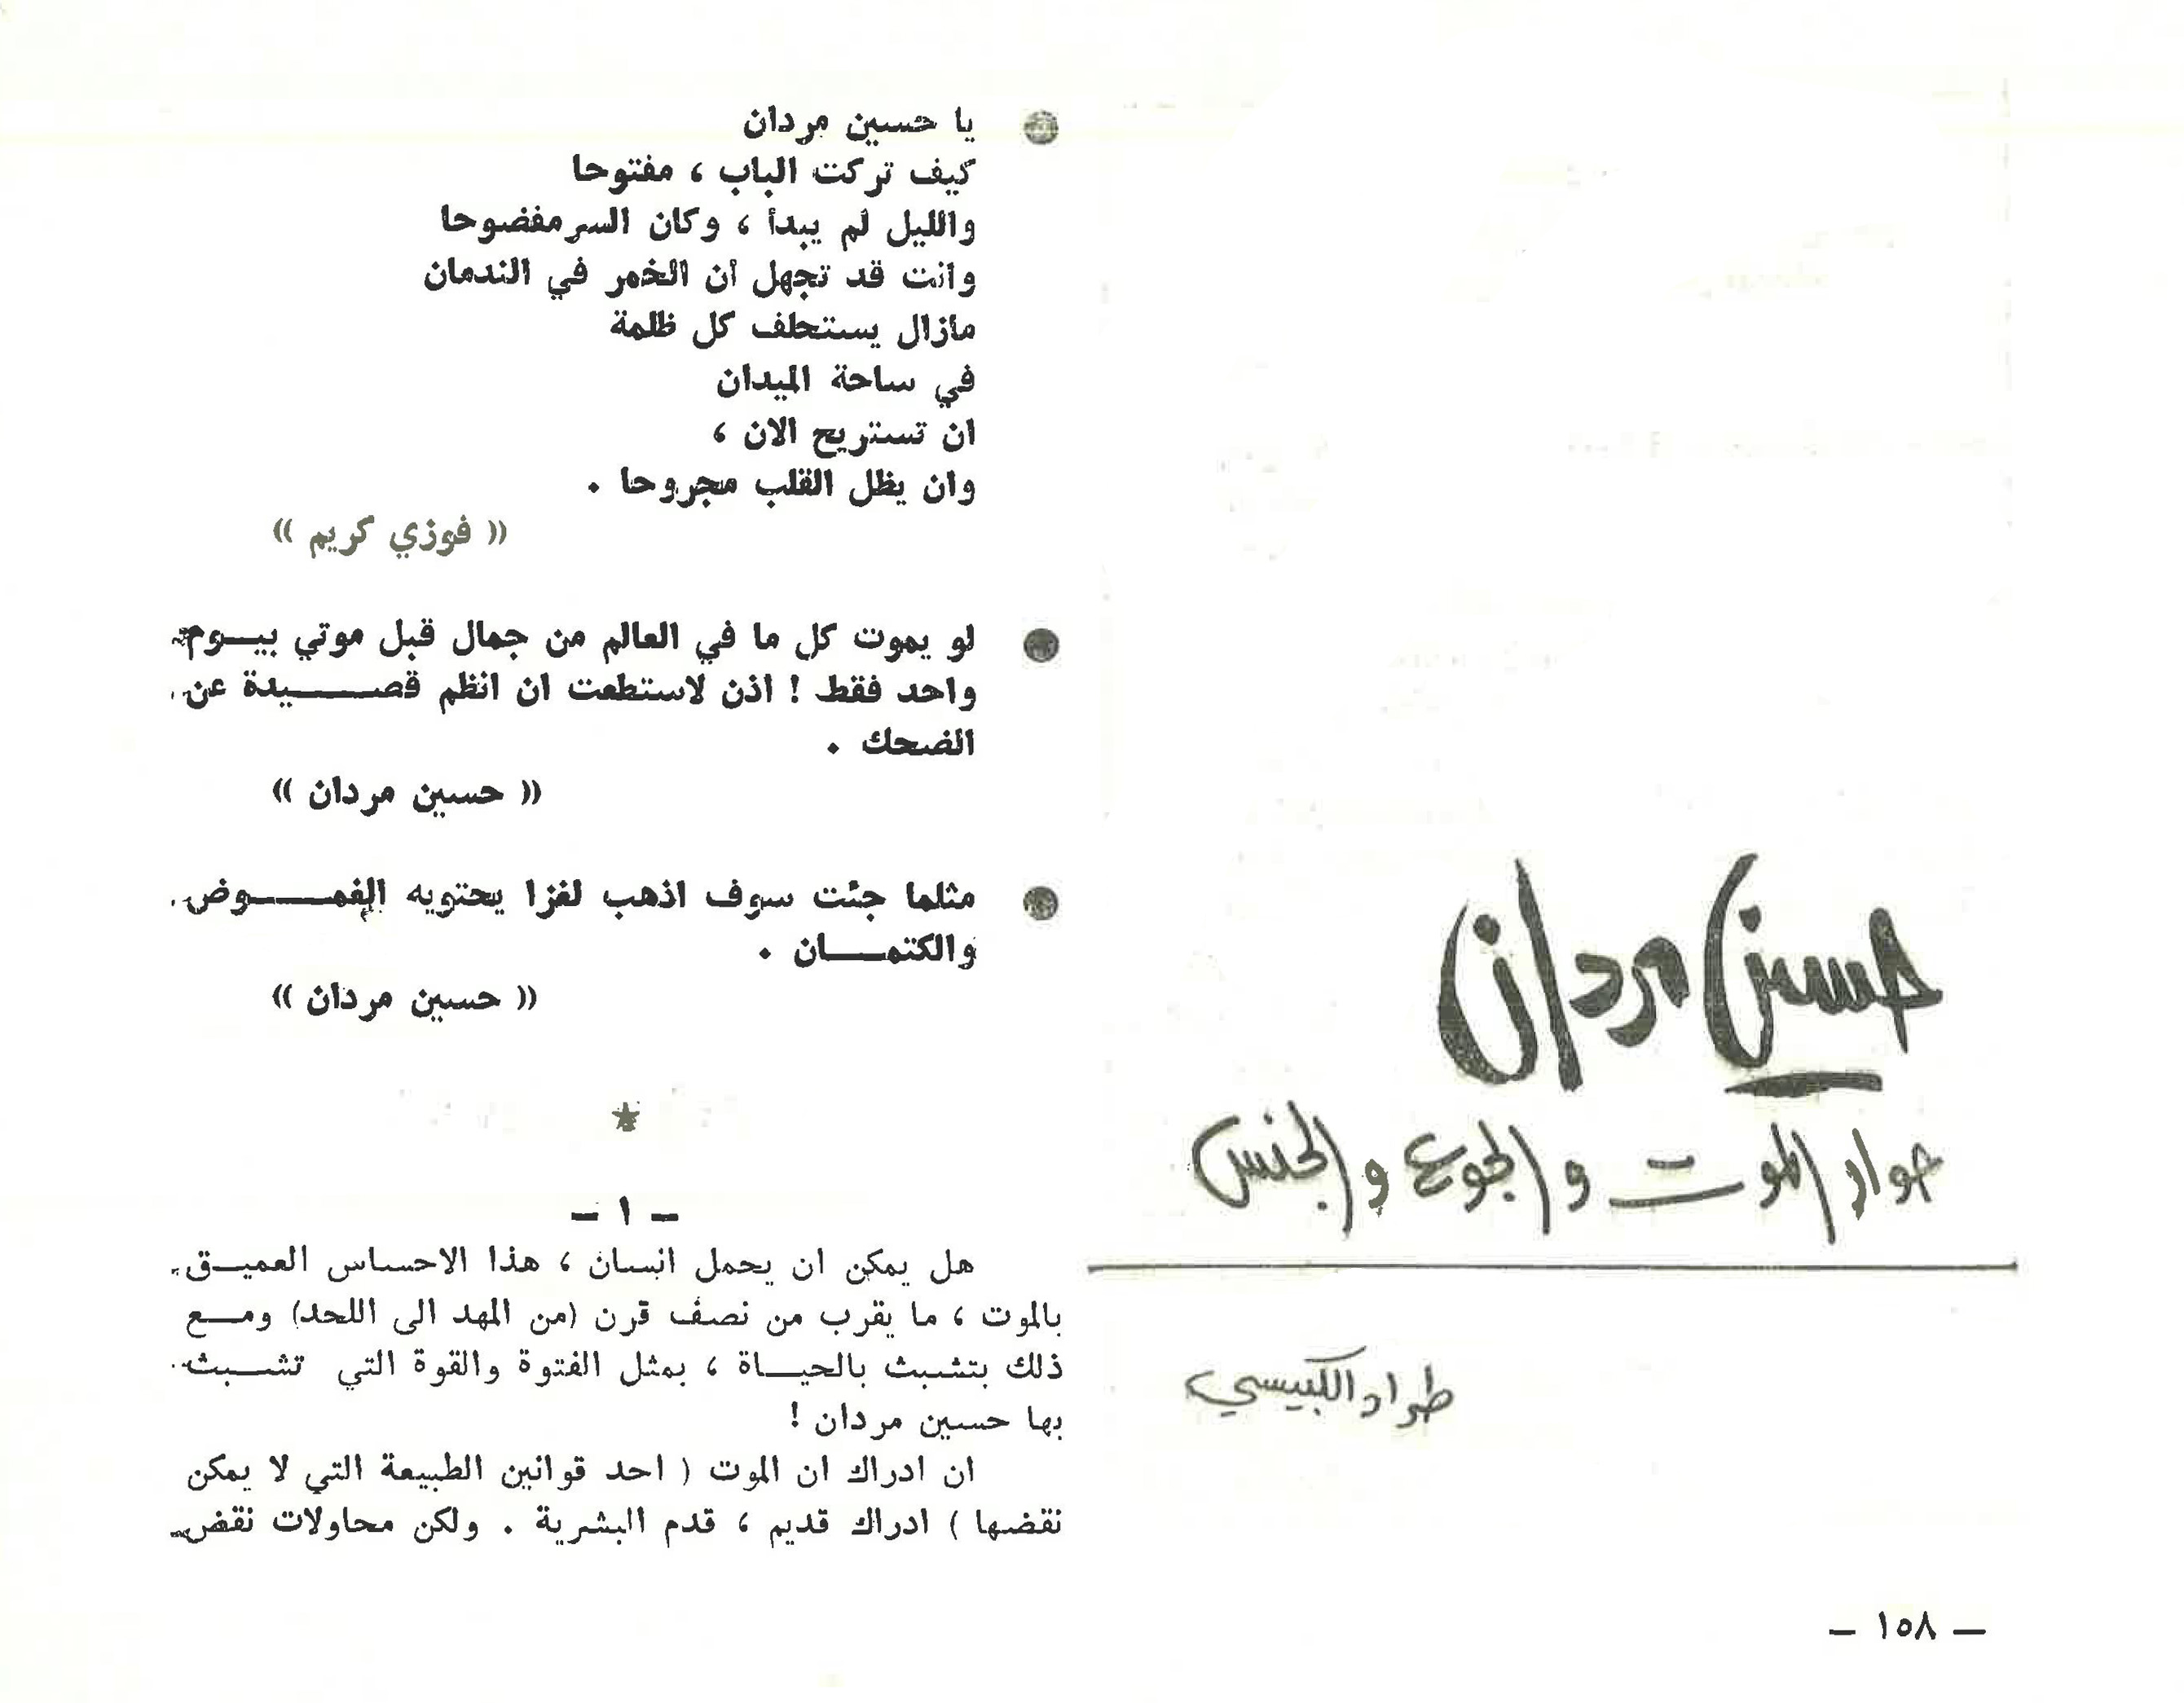 حسين مردان
حوار الموت والجوع والجنس
طراد الكبيسي
● يا حسين مردان
كيف تركت الباب ، مفتوحا
والليل لم يبدأ ، وكان السر مفضوحا
وانت قد تجهل أن الخمر في الندمان
مازال يستحلف كل ظلمة
في ساحة الميدان
ان تستريح الان ،
وان يظل القلب مجروحا .
(( فوزي كريم ))
● لو يموت كل ما في العالم من جمال قبل موتي بيـــوم
واحد فقط ! اذن لاستطعت ان انظم قصــــيدة عن
الضحك .
(( حسين مردان ))
● مثلما جئت سوف اذهب لغزا يحتويه الغمـــوض
والكتمـــان .
(( حسين مردان ))
★
– ١ –
هل يمكن ان يحمل انسان ، هذا الاحساس العميـــق
بالموت ، ما يقرب من نصف قرن (من المهد الى اللحد) ومـــع
ذلك بتشبث بالحيـــاة ، بمثل الفتوة والقوة التي تشـــبث
بها حسين مردان !
ان ادراك ان الموت ( احد قوانين الطبيعة التي لا يمكن
نقضها ) ادراك قديم ، قدم البشرية . ولكن محاولات نقض
– ١٥٨ –